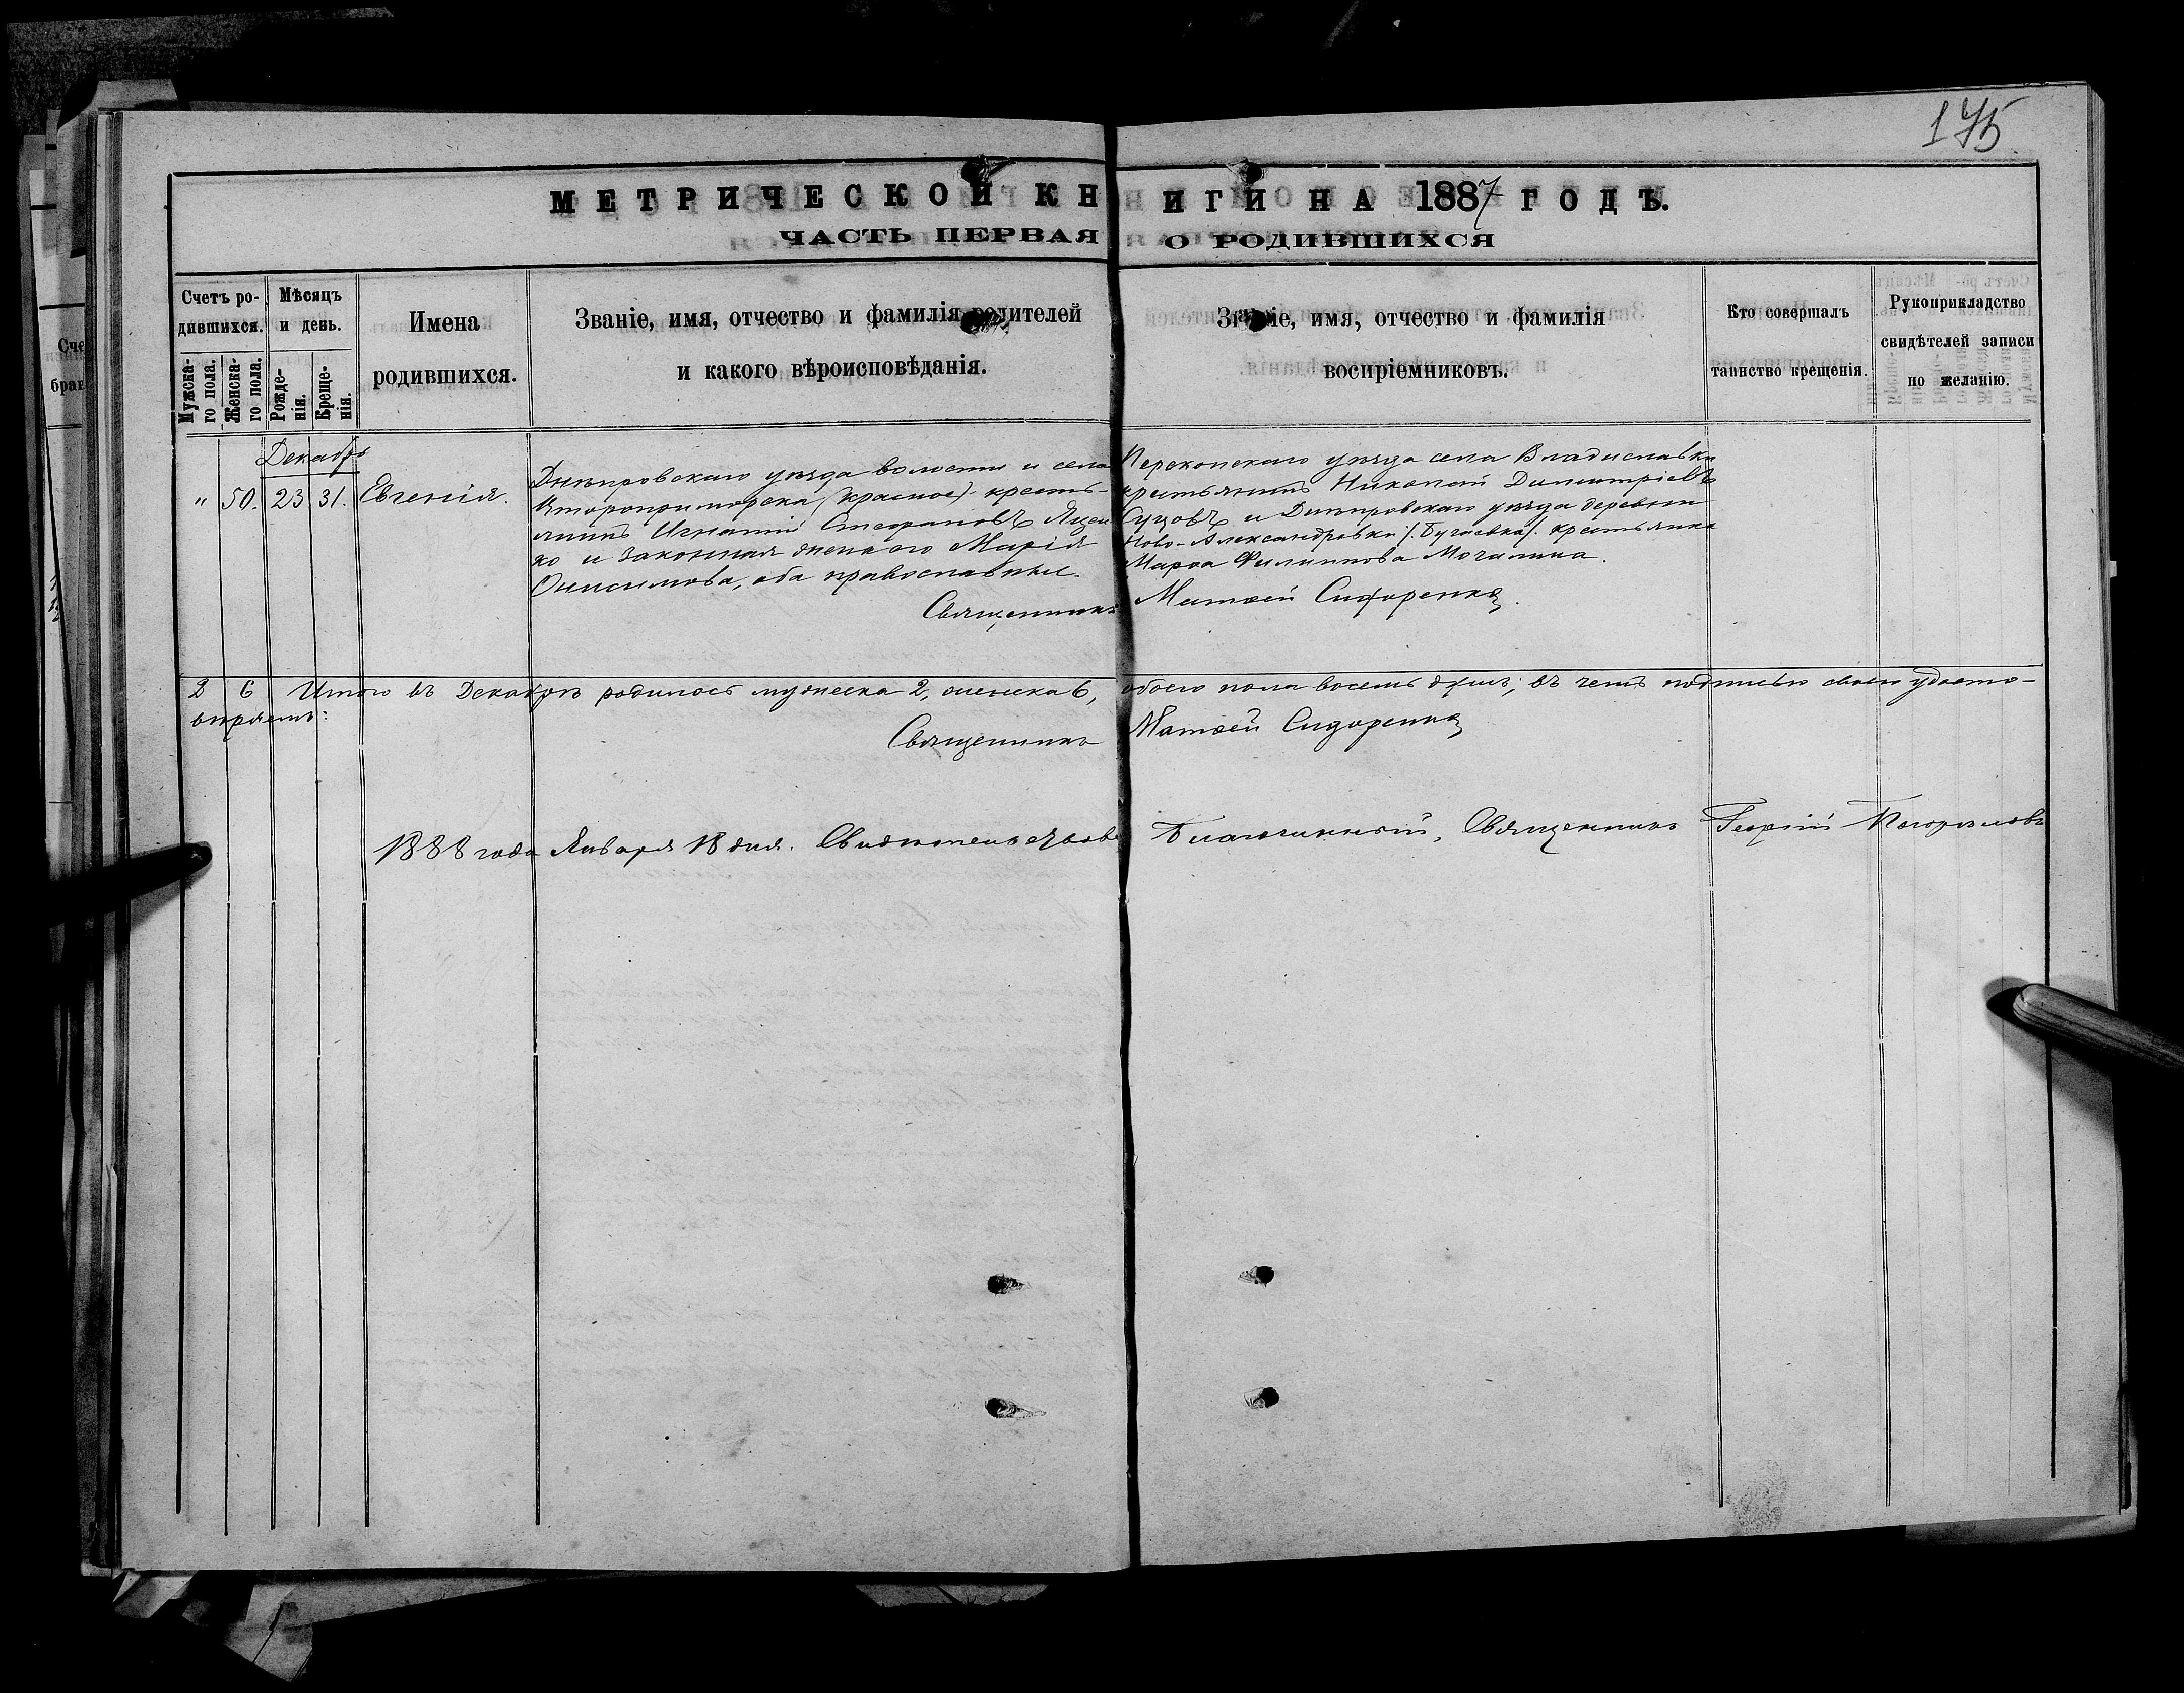 175
МЕТРИЧЕСКОЙ КНИГИ НА 1887 ГОДЪ.
ЧАСТЬ ПЕРВАЯ О РОДИВШИХСЯ
Счетъ родившихся.
Мужскаго пола.
Женскаго пола.
Мѣсяцъ и день.
Рожденія.
Крещенія.
Имена
родившихся.
Званіе, имя, отчество и фамилія родителей
и какого вѣроисповѣданія.
Званіе, имя, отчество и фамилія
воспріемниковъ.
Кто совершалъ
таинство крещенія.
Рукоприкладство
свидѣтелей записи
по желанію.
Декабрь
" 50. 23 31. Евгенія.
Днѣпровскаго уѣзда волости и села
Второпокровска (Красное) кресть-
янинъ Игнатій Стефановъ Яцен-
ко и законная жена его Марія
Онисимова, оба православные.
Перекопскаго уѣзда села Владиславки
крестьянинъ Николай Димитріевъ
и Днѣпровскаго уѣзда деревни
Ново-Александровки /:Бугаевка/: крестьянка
Марѳа Филиппова Мочалина.
Священникъ Матѳей Сидоренко
2 6 Итого въ Декабрѣ родилось мужеска 2, женска 6, обоего пола восемь душъ; въ чемъ подписью своею удосто-
вѣряемъ:
Священникъ Матѳей Сидоренко
1888 года Января 18 дня. Благочинный, Священникъ Георгій Погорѣловъ
Сче
брак